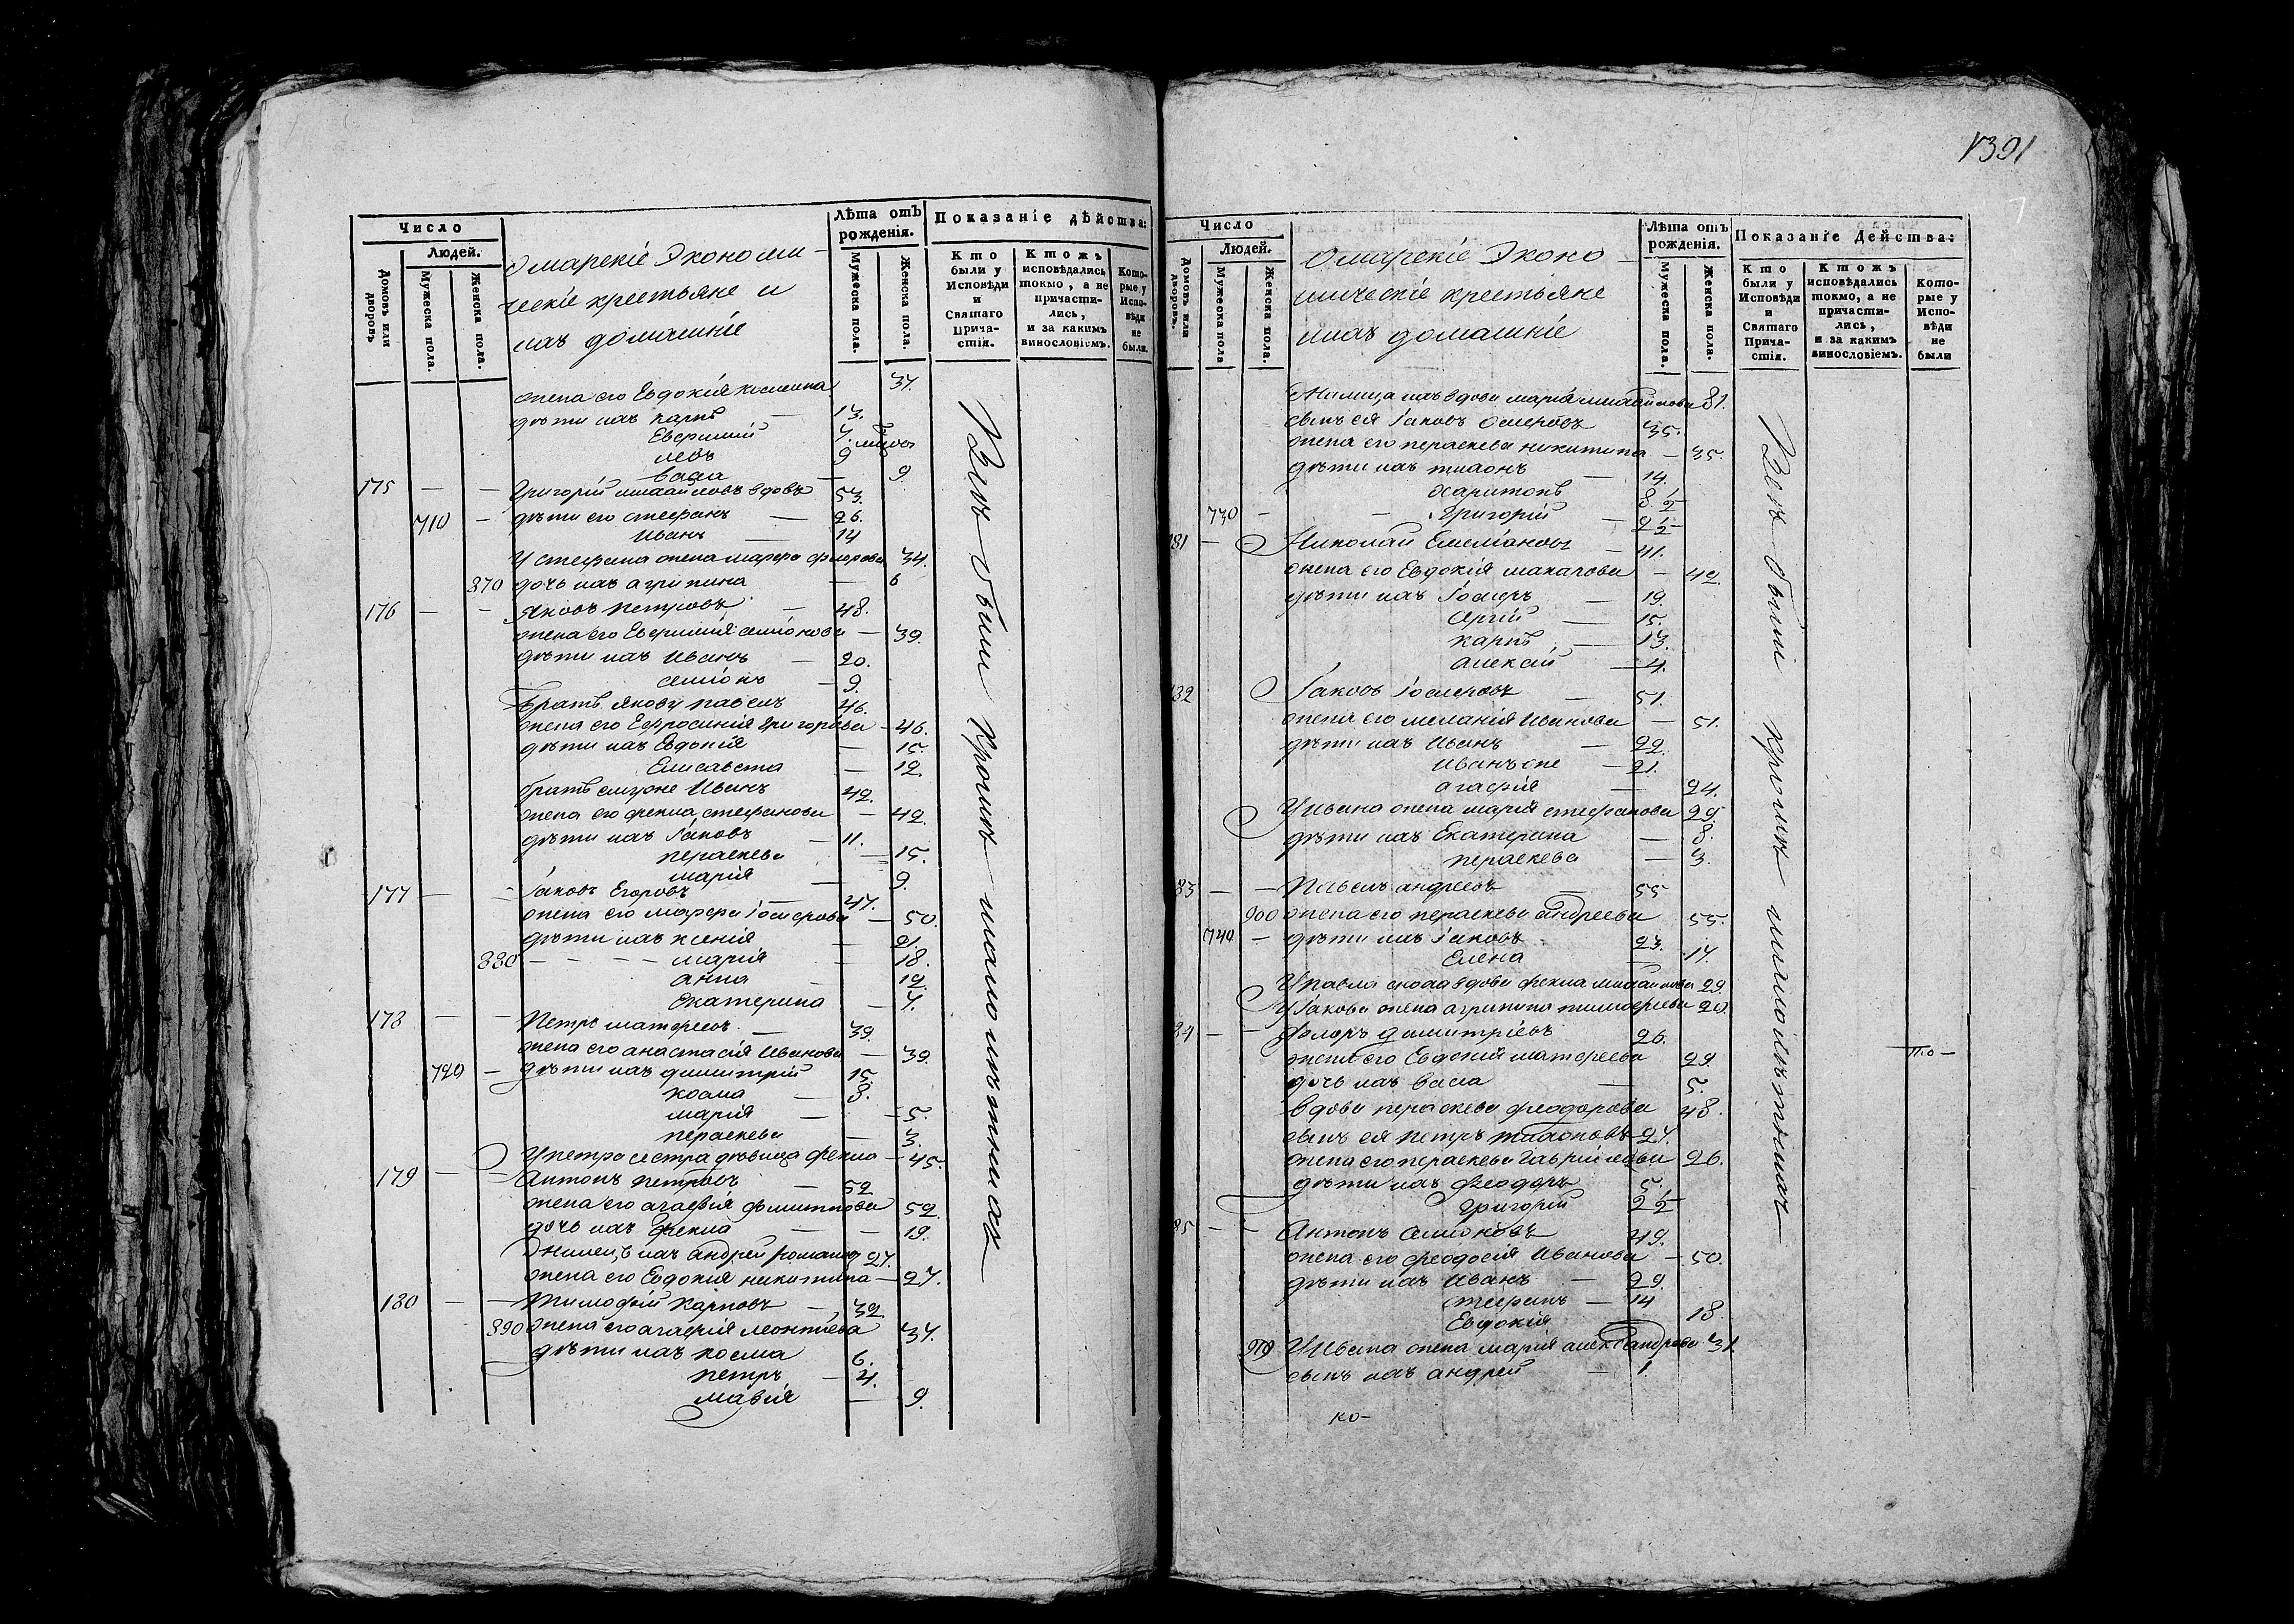 Число
Людей.
Домовъ или дворовъ.
Мужеска пола.
Женска пола.
Экономи-
ческіе крестьяне и
ихъ домашніе
Лѣта отъ рожденія.
Мужеска пола.
Женска пола.
Показаніе дѣйства:
Кто были у Исповѣди и Святаго Причастія.
Ктожъ исповѣдались токмо, а не причастились, и за какимъ винословіемъ.
Которые у Исповѣди не были.
жена его Евдокія 37.
дѣти ихъ карпъ — 13.
Евфимій 7.
левъ 9
васса — 9.
175 — — Григорій михайловъ вдовъ 53.
710 — дѣти его стефанъ — 26.
Иванъ — 14
У стефана жена марфа 34.
870 дочь ихъ агрипина — 6
176 — — Яковъ петровъ — 48.
жена его Евфимія семіонова — 39.
дѣти ихъ Иванъ — 20.
семіонъ — 9.
братъ якову павелъ 46.
жена его Евфросинія григорьева — 46.
дѣти ихъ Евдокія — 15.
Елисавета — 12.
братъ емуже Иванъ 42.
жена его фекла стефанова — 42.
дѣти ихъ Іаковъ — 11.
параскева — 15.
марія — 9.
177 — — Іаковъ Егоровъ — 47.
жена его марфа Іосифова — 50.
дѣти ихъ ксенія — 21.
880 — — — — марія — 18.
анна — 12.
Екатерина — 7.
178 — — Петръ матфеевъ — 39.
жена его анастасія Иванова — 39.
720 — дѣти ихъ димитрій 15.
косма — 8.
марія — 5.
параскева — 3.
У петра сестра дѣвица фекла — 45.
179 — — Антонъ петровъ — 52
жена его агафія 52.
дочь ихъ фекла — 19.
андрей романовъ 27.
жена его Евдокія никитина — 27.
180 — — Тимофей карповъ — 32.
890 жена его агафія леонтіева 37.
дѣти ихъ косма 6.
петръ — 4.
марія — 9.
Всѣ были кромѣ малолѣтныхъ
1391
Число
Людей.
Домовъ или дворовъ.
Мужеска пола
Женска пола.
Эконо-
мическіе крестьяне
ихъ домашніе
Лѣта отъ рожденія.
Мужеска пола.
Женска пола.
Показаніе Действа:
Кто были у Исповѣди и Святаго Причастія.
Ктожъ исповѣдались токмо, а не причастились, и за какимъ винословіемъ.
Которые у Исповѣди не были
вдова марія михайлова 81.
сынъ ея Іаковъ 35.
жена его параскева никитина — 35.
дѣти ихъ тихонъ — 14.
харитонъ 8 1/2
730 — — Григорій — 2 1/2
181 — Николай Емеліановъ — 41.
жена его Евдокія макарова — 42.
дѣти ихъ Іосифъ — 19.
сергій — 15.
карпъ — 13.
алексей — 4.
182 Іаковъ Іосифовъ — 51.
жена его меланія Иванова — 51.
дѣти ихъ Иванъ — 22.
Иванъ же — 21.
агафія — 24.
У Ивана жена марія стефанова 25.
дѣти ихъ Екатерина — 8.
параскева — 3.
83 — — Павелъ андреевъ — 55
900 жена его параскева андреева 55.
740 — дѣти ихъ Іаковъ 23.
Елена — 17.
У павла сноха вдова фекла михайлова 29.
У Іакова жена агрипина тимофеева 20.
84 — — димитріевъ 26.
жена его Евдокія матфеева 29.
дочь ихъ васса — 5.
вдова параскева феодорова 48.
сынъ ея петръ тихоновъ — 27.
жена его параскева гавріилова 26.
дѣти ихъ феодоръ 5.
григорій 2 1/2
85 — — Антонъ семіоновъ 49.
жена его феодосія Иванова — 50.
дѣти ихъ Иванъ — 29.
стефанъ — 14
Евдокія — 18.
910 У Ивана жена марія александрова 31.
сынъ ихъ андрей — 1.
ко-
Всѣ были кромѣ малолѣтныхъ